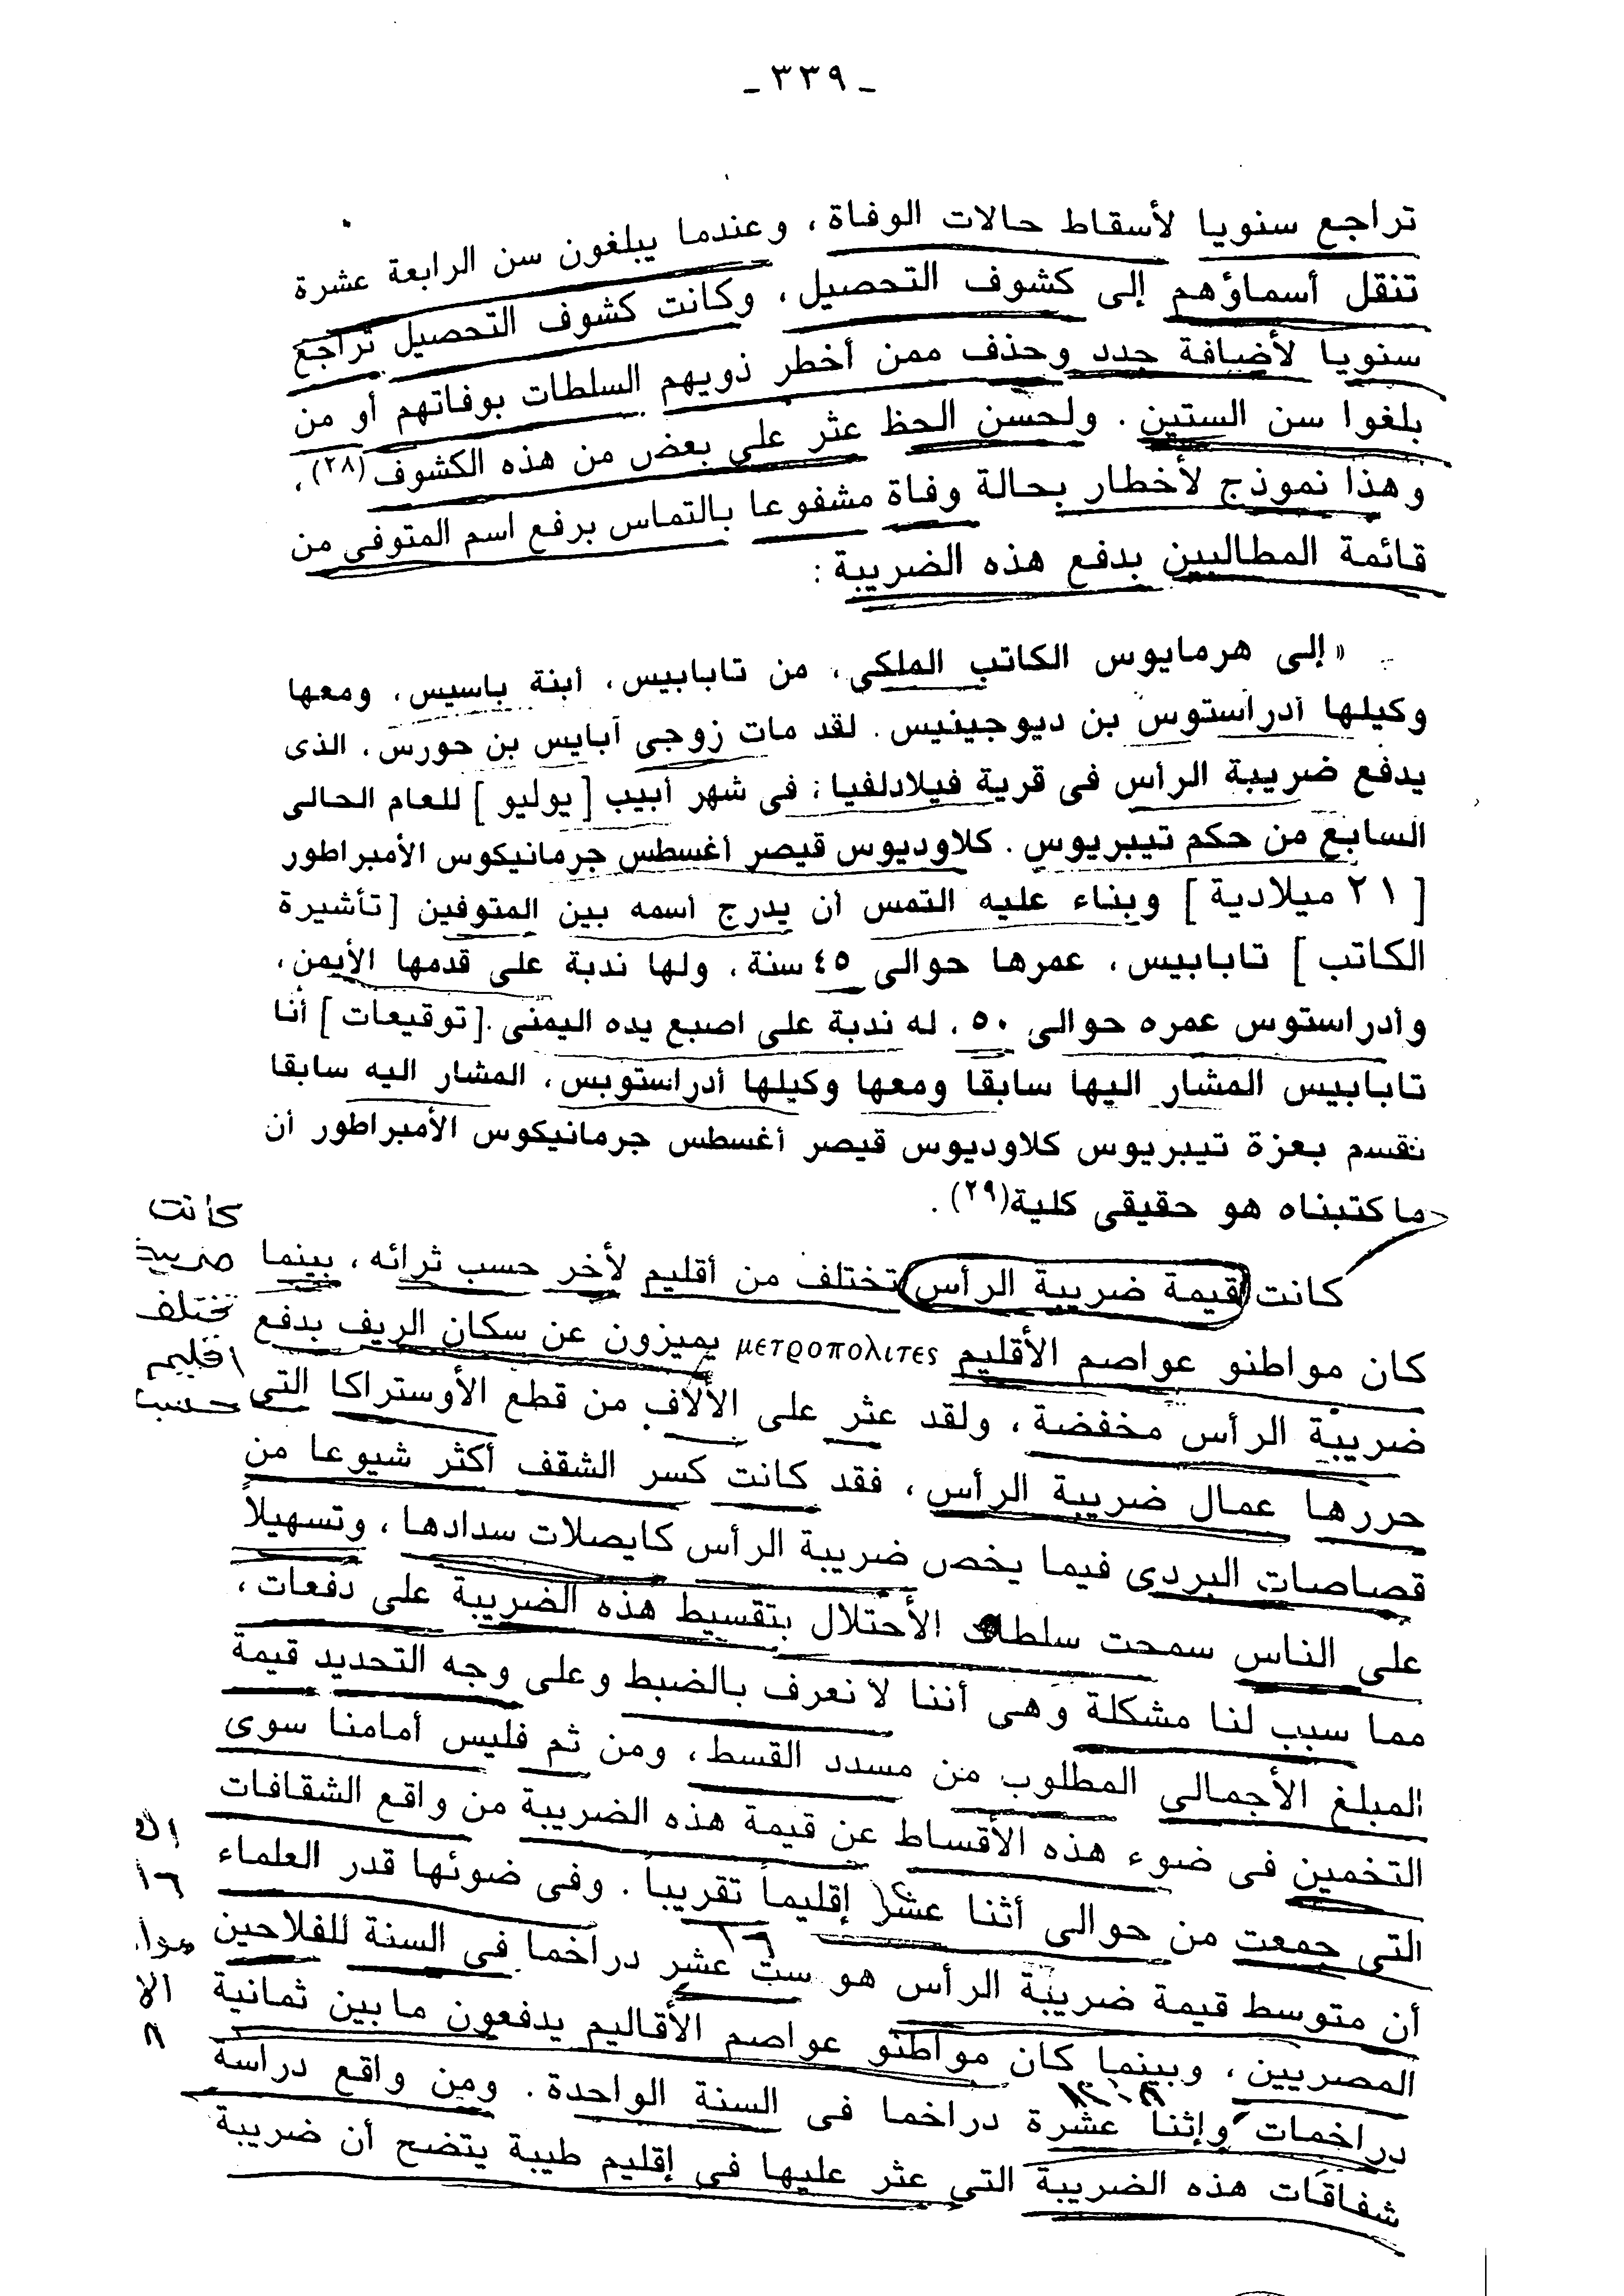 ـ ٣٣٩ ـ
تراجع سنويا لأسقاط حالات الوفاة ، وعندما يبلغون سن الرابعة عشرة
تنقل أسماؤهم إلى كشوف التحصيل ، وكانت كشوف التحصيل تراجع
سنويا لأضافة جدد وحذف ممن أخطر ذويهم السلطات بوفاتهم أو من
بلغوا سن الستين . ولحسن الحظ عثر على بعض من هذه الكشوف (٢٨) ،
وهذا نموذج لأخطار بحالة وفاة مشفوعا بالتماس برفع اسم المتوفى من
قائمة المطالبين بدفع هذه الضريبة :
« إلى هرمايوس الكاتب الملكى ، من تابابيس ، أبنة باسيس ، ومعها
وكيلها أدراستوس بن ديوجينيس . لقد مات زوجى آبايس بن حورس ، الذى
يدفع ضريبة الرأس فى قرية فيلادلفيا ؛ فى شهر أبيب [ يوليو ] للعام الحالى
السابع من حكم تيبريوس . كلاوديوس قيصر أغسطس جرمانيكوس الأمبراطور
[ ٢١ ميلادية ] وبناء عليه التمس أن يدرج أسمه بين المتوفين [ تأشيرة
الكاتب ] تابابيس ، عمرها حوالى ٤٥ سنة ، ولها ندبة على قدمها الأيمن ،
وأدراستوس عمره حوالى ٥٠ ، له ندبة على اصبع يده اليمنى . [ توقيعات ] أنا
تابابيس المشار اليها سابقا ومعها وكيلها أدراستوبس ، المشار اليه سابقا
نقسم بعزة تيبريوس كلاوديوس قيصر أغسطس جرمانيكوس الأمبراطور أن
ما كتبناه هو حقيقى كلية (٢٩) .
كانت قيمة ضريبة الرأس تختلف من أقليم لأخر حسب ثرائه ، بينما
كان مواطنو عواصم الأقليم μετροπολιτες يميزون عن سكان الريف بدفع
ضريبة الرأس مخفضة ، ولقد عثر على الألاف من قطع الأوستراكا التى
حررها عمال ضريبة الرأس ، فقد كانت كسر الشقف أكثر شيوعا من
قصاصات البردى فيما يخص ضريبة الرأس كايصلات سدادها ، وتسهيلاً
على الناس سمحت سلطات الأحتلال بتقسيط هذه الضريبة على دفعات ،
مما سبب لنا مشكلة وهى أننا لا نعرف بالضبط وعلى وجه التحديد قيمة
المبلغ الأجمالى المطلوب من مسدد القسط ، ومن ثم فليس أمامنا سوى
التخمين فى ضوء هذه الأقساط عن قيمة هذه الضريبة من واقع الشقافات
التى جمعت من حوالى أثنا عشر إقليماً تقريباً . وفى ضوئها قدر العلماء
أن متوسط قيمة ضريبة الرأس هو ست عشر دراخما فى السنة للفلاحين
المصريين ، وبينما كان مواطنو عواصم الأقاليم يدفعون ما بين ثمانية
دراخمات وإثنا عشرة دراخما فى السنة الواحدة . ومن واقع دراسة
شفاقات هذه الضريبة التى عثر عليها فى إقليم طيبة يتضح أن ضريبة
كانت
ضريبة
تختلف
اقليم
حسب
١٦
٨
١٦